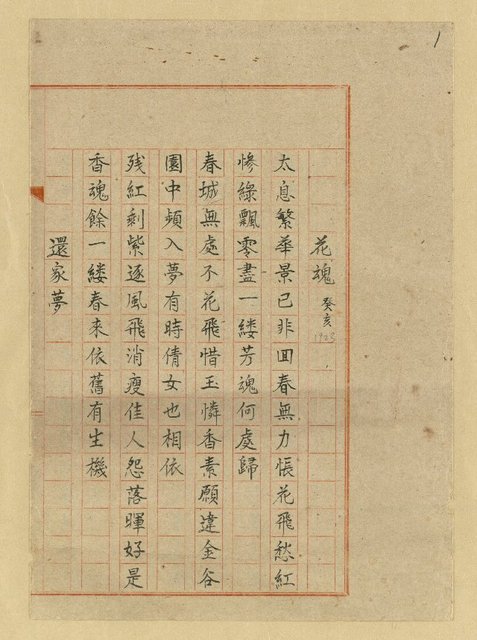 1
花魂 癸亥
1923
太息繁華景已非回春無力悵花飛愁紅
慘綠飄零盡一縷芳魂何處歸
春城無處不花飛惜玉憐香素願違金谷
園中頻入夢有時倩女也相依
殘紅剩紫逐風飛消瘦佳人怨落暉好是
香魂餘一縷春來依舊有生機
還家夢